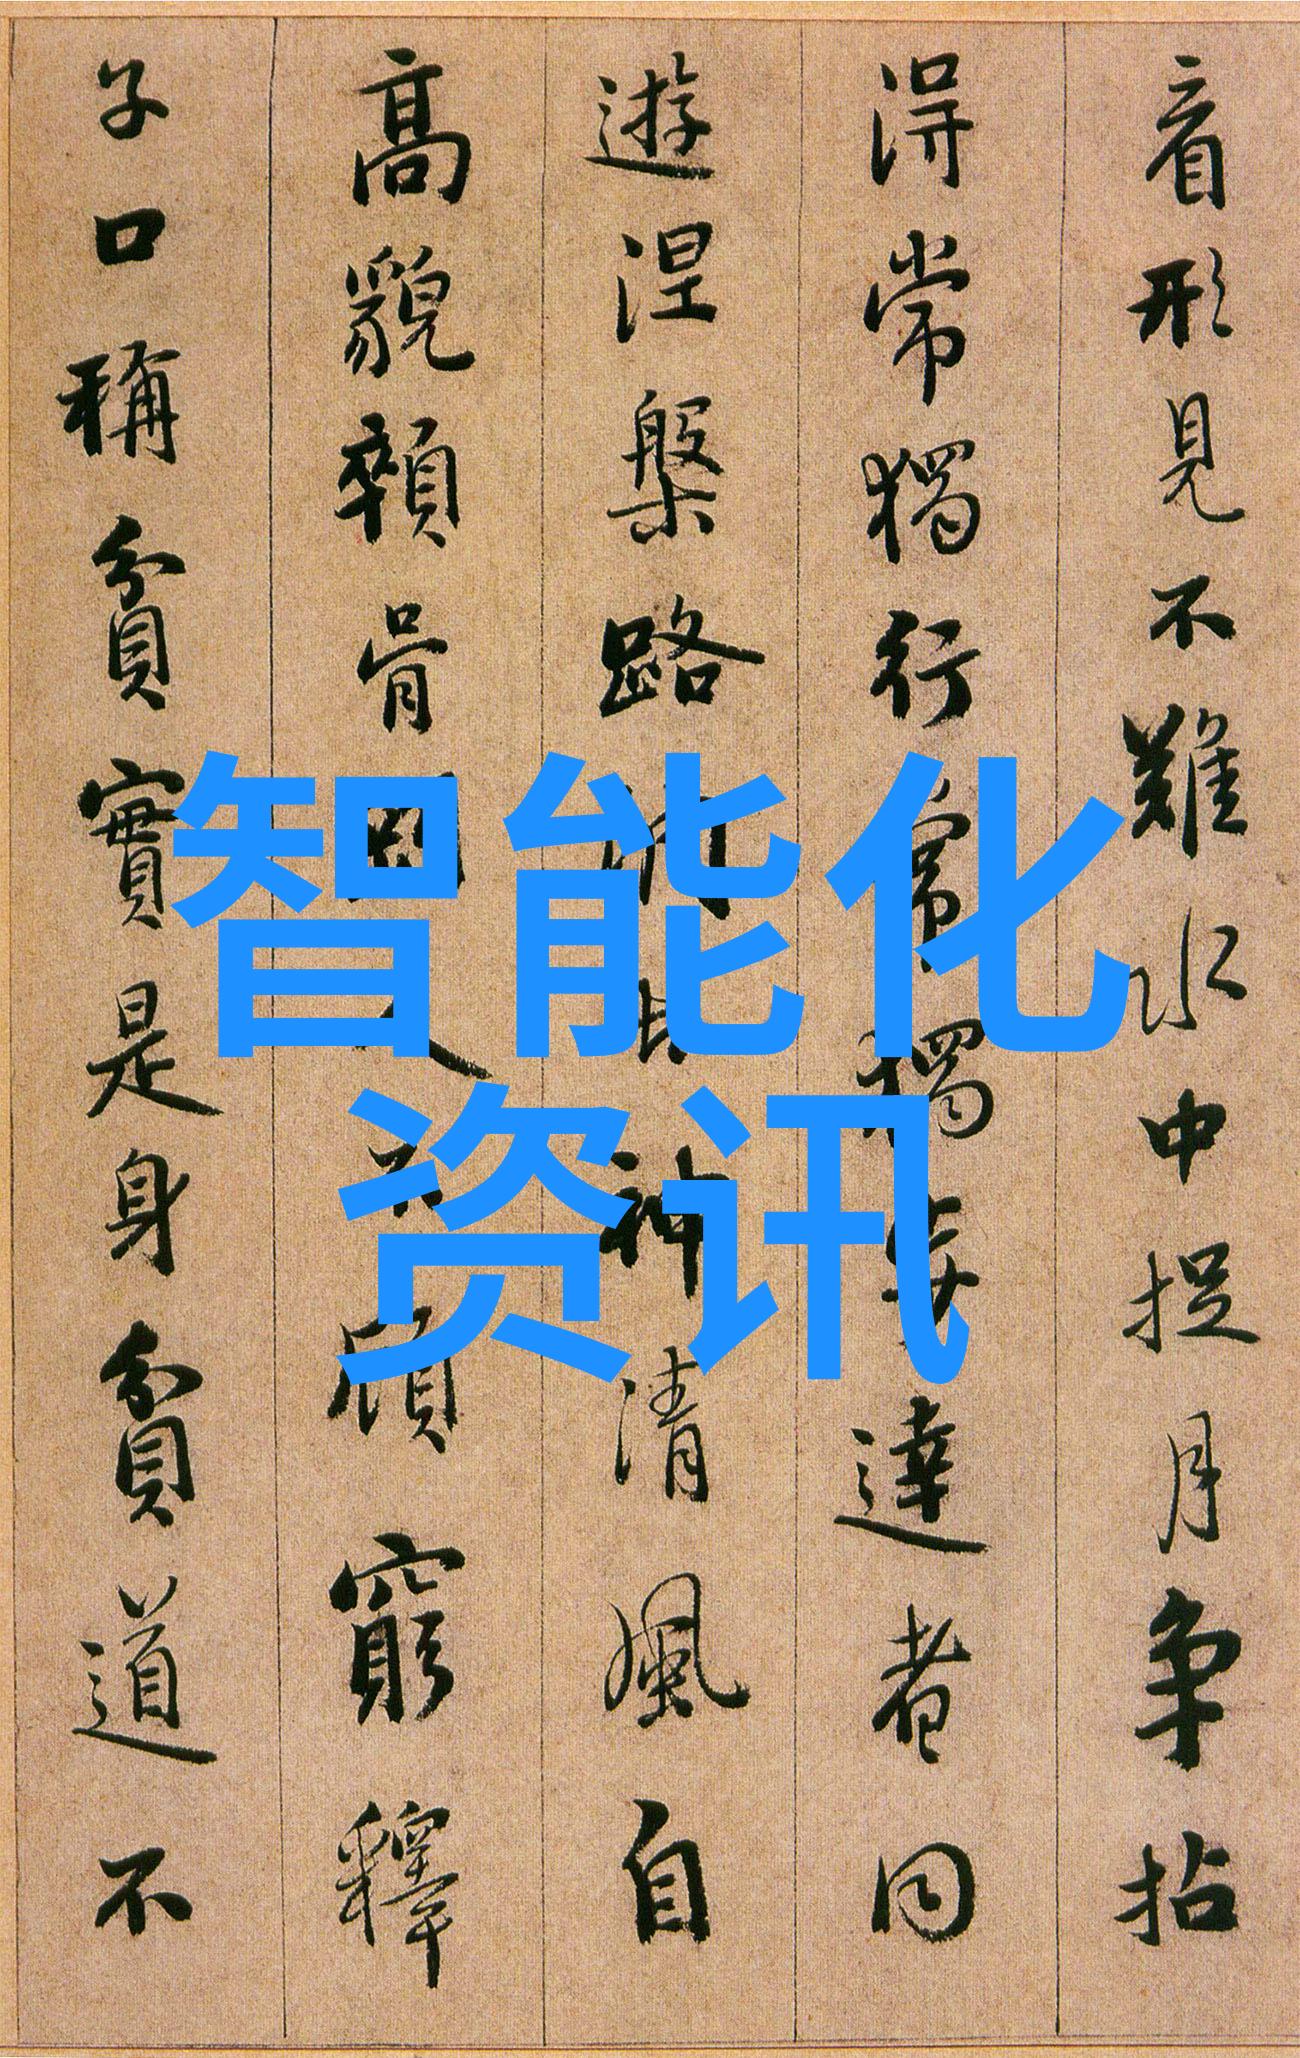 看形見不難水中捉月争拈
得常獨行常獨步達者同
遊涅槃路神清風自
高貌顇骨不顧窮釋
子口稱貧實是身貧道不
智能化
资讯